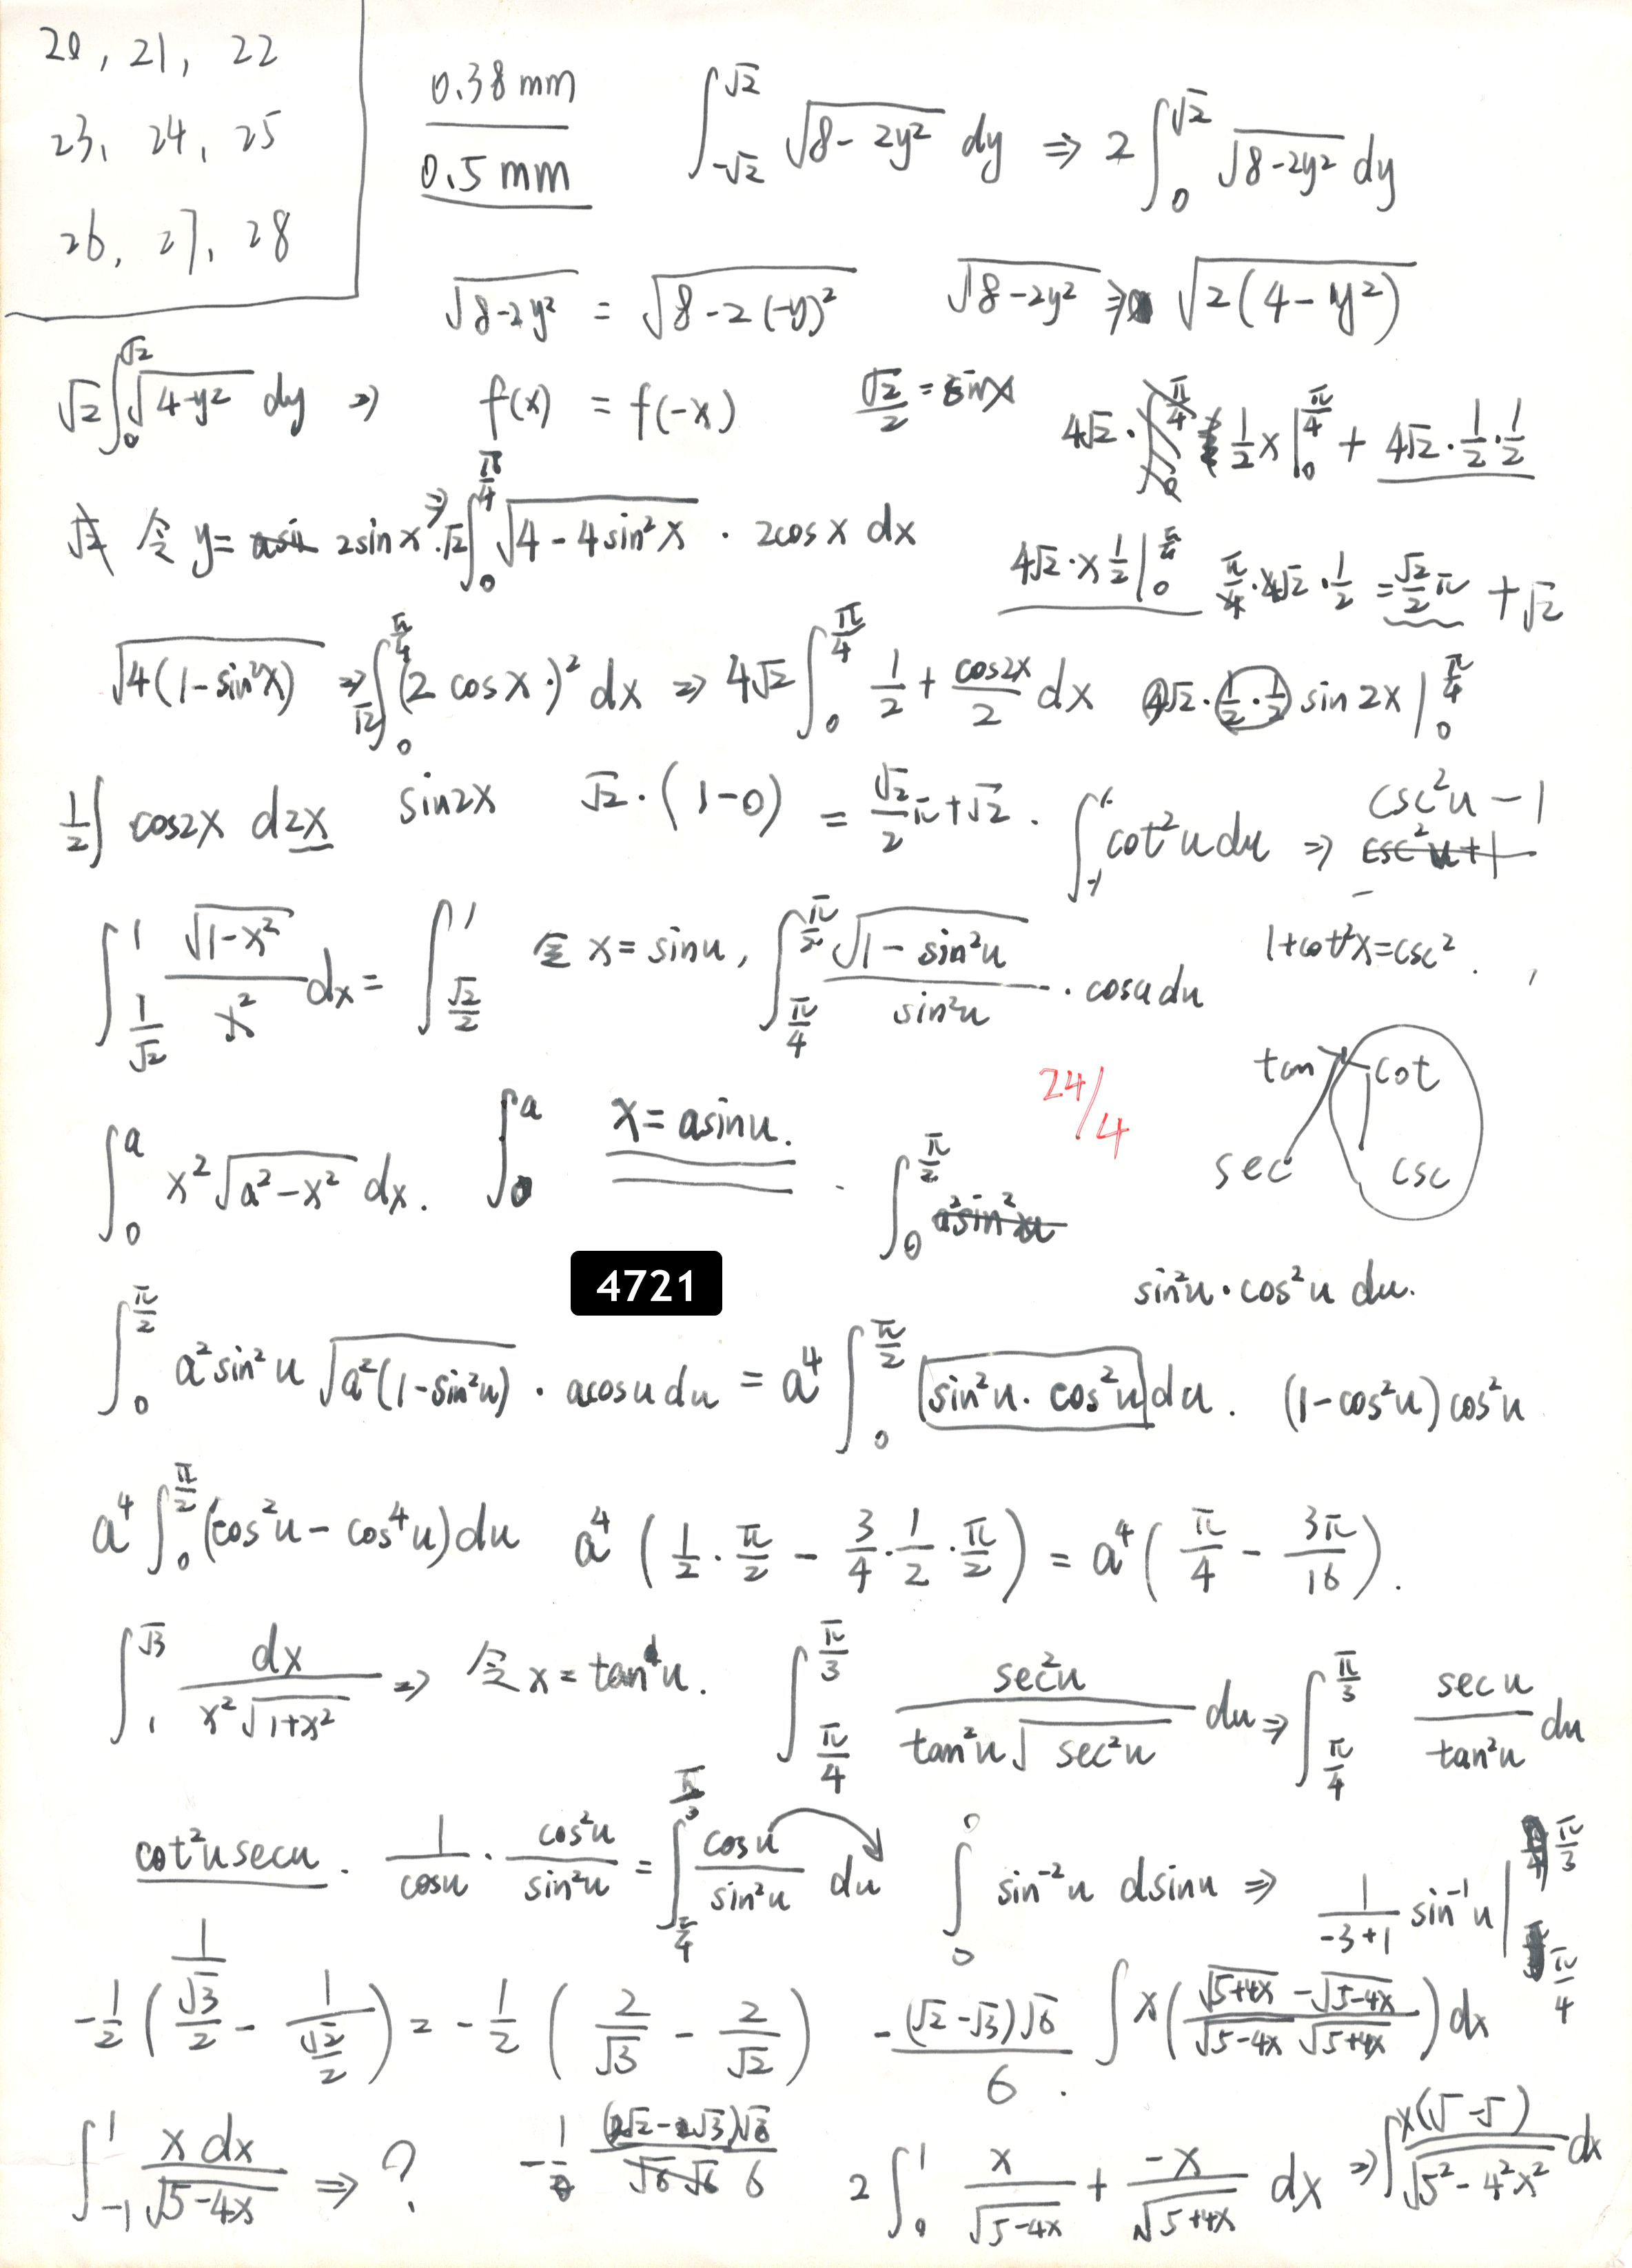 20, 21, 22
23, 24, 25
26, 27, 28
0.38 mm
0.5 mm
∫_{-√2}^{√2} √(8-2y²) dy ⇒ 2∫_0^{√2} √(8-2y²) dy
√(8-2y²) = √(8-2(-y)²) √(8-2y²) ⇒ √(2(4-y²))
√2∫_0^{√2} √(4-y²) dy ⇒ f(x) = f(-x) √2/2 = sinx
4√2 · 1/2 x |_0^{π/4} + 4√2 · 1/2 · 1/2
令 y = 2sinx ⇒ √2∫_0^{π/4} √(4-4sin²x) · 2cosx dx
4√2 · x 1/2 |_0^{π/4} π/4 · 4√2 · 1/2 = √2/2 π + √2
√(4(1-sin²x)) ⇒ √2∫_0^{π/4} (2cosx·)² dx ⇒ 4√2∫_0^{π/4} 1/2 + cos2x/2 dx 4√2 · (1/2 · 1/2) sin2x |_0^{π/4}
1/2∫ cos2x d2x sin2x √2 · (1-0) = √2/2 π + √2. ∫ cot²u du ⇒ csc²u - 1
csc²u+1
∫_{1/√2}^1 √(1-x²)/x² dx = ∫_{√2/2}^1 令 x = sinu, ∫_{π/4}^{π/2} √(1-sin²u)/sin²u · cosu du
1+cot²x=csc².
tan cot
sec csc
24/4
∫_0^a x²√(a²-x²) dx. ∫_0^a x = asinu. ∫_0^{π/2} a²sin²u
4721
sin²u · cos²u du.
∫_0^{π/2} a²sin²u √(a²(1-sin²u)) · acosu du = a⁴∫_0^{π/2} sin²u · cos²u du. (1-cos²u)cos²u
a⁴∫_0^{π/2} (cos²u - cos⁴u) du a⁴(1/2 · π/2 - 3/4 · 1/2 · π/2) = a⁴(π/4 - 3π/16).
∫_1^{√3} dx/(x²√(1+x²)) ⇒ 令 x = tan u. ∫_{π/4}^{π/3} sec²u/(tan²u√(sec²u)) du ⇒ ∫_{π/4}^{π/3} secu/tan²u du
cot²usecu. 1/cosu · cos²u/sin²u = ∫_{π/4}^{π/3} cosu/sin²u du ∫_0 sin⁻²u dsinu ⇒ 1/(-3+1) sin⁻¹u |_{π/4}^{π/3}
-1/2 (1/(√3/2) - 1/(√2/2)) = -1/2 (2/√3 - 2/√2) -(√2-√3)√6/6. ∫x((√(5+4x) - √(5-4x))/(√(5-4x)√(5+4x))) dx
∫_{-1}^1 x dx/√(5-4x) ⇒ ? (√2-√3)√6/(√6√6) 6 2∫_0^1 x/√(5-4x) + -x/√(5+4x) dx ⇒ ∫ x(√-√)/√(5²-4²x²) dx